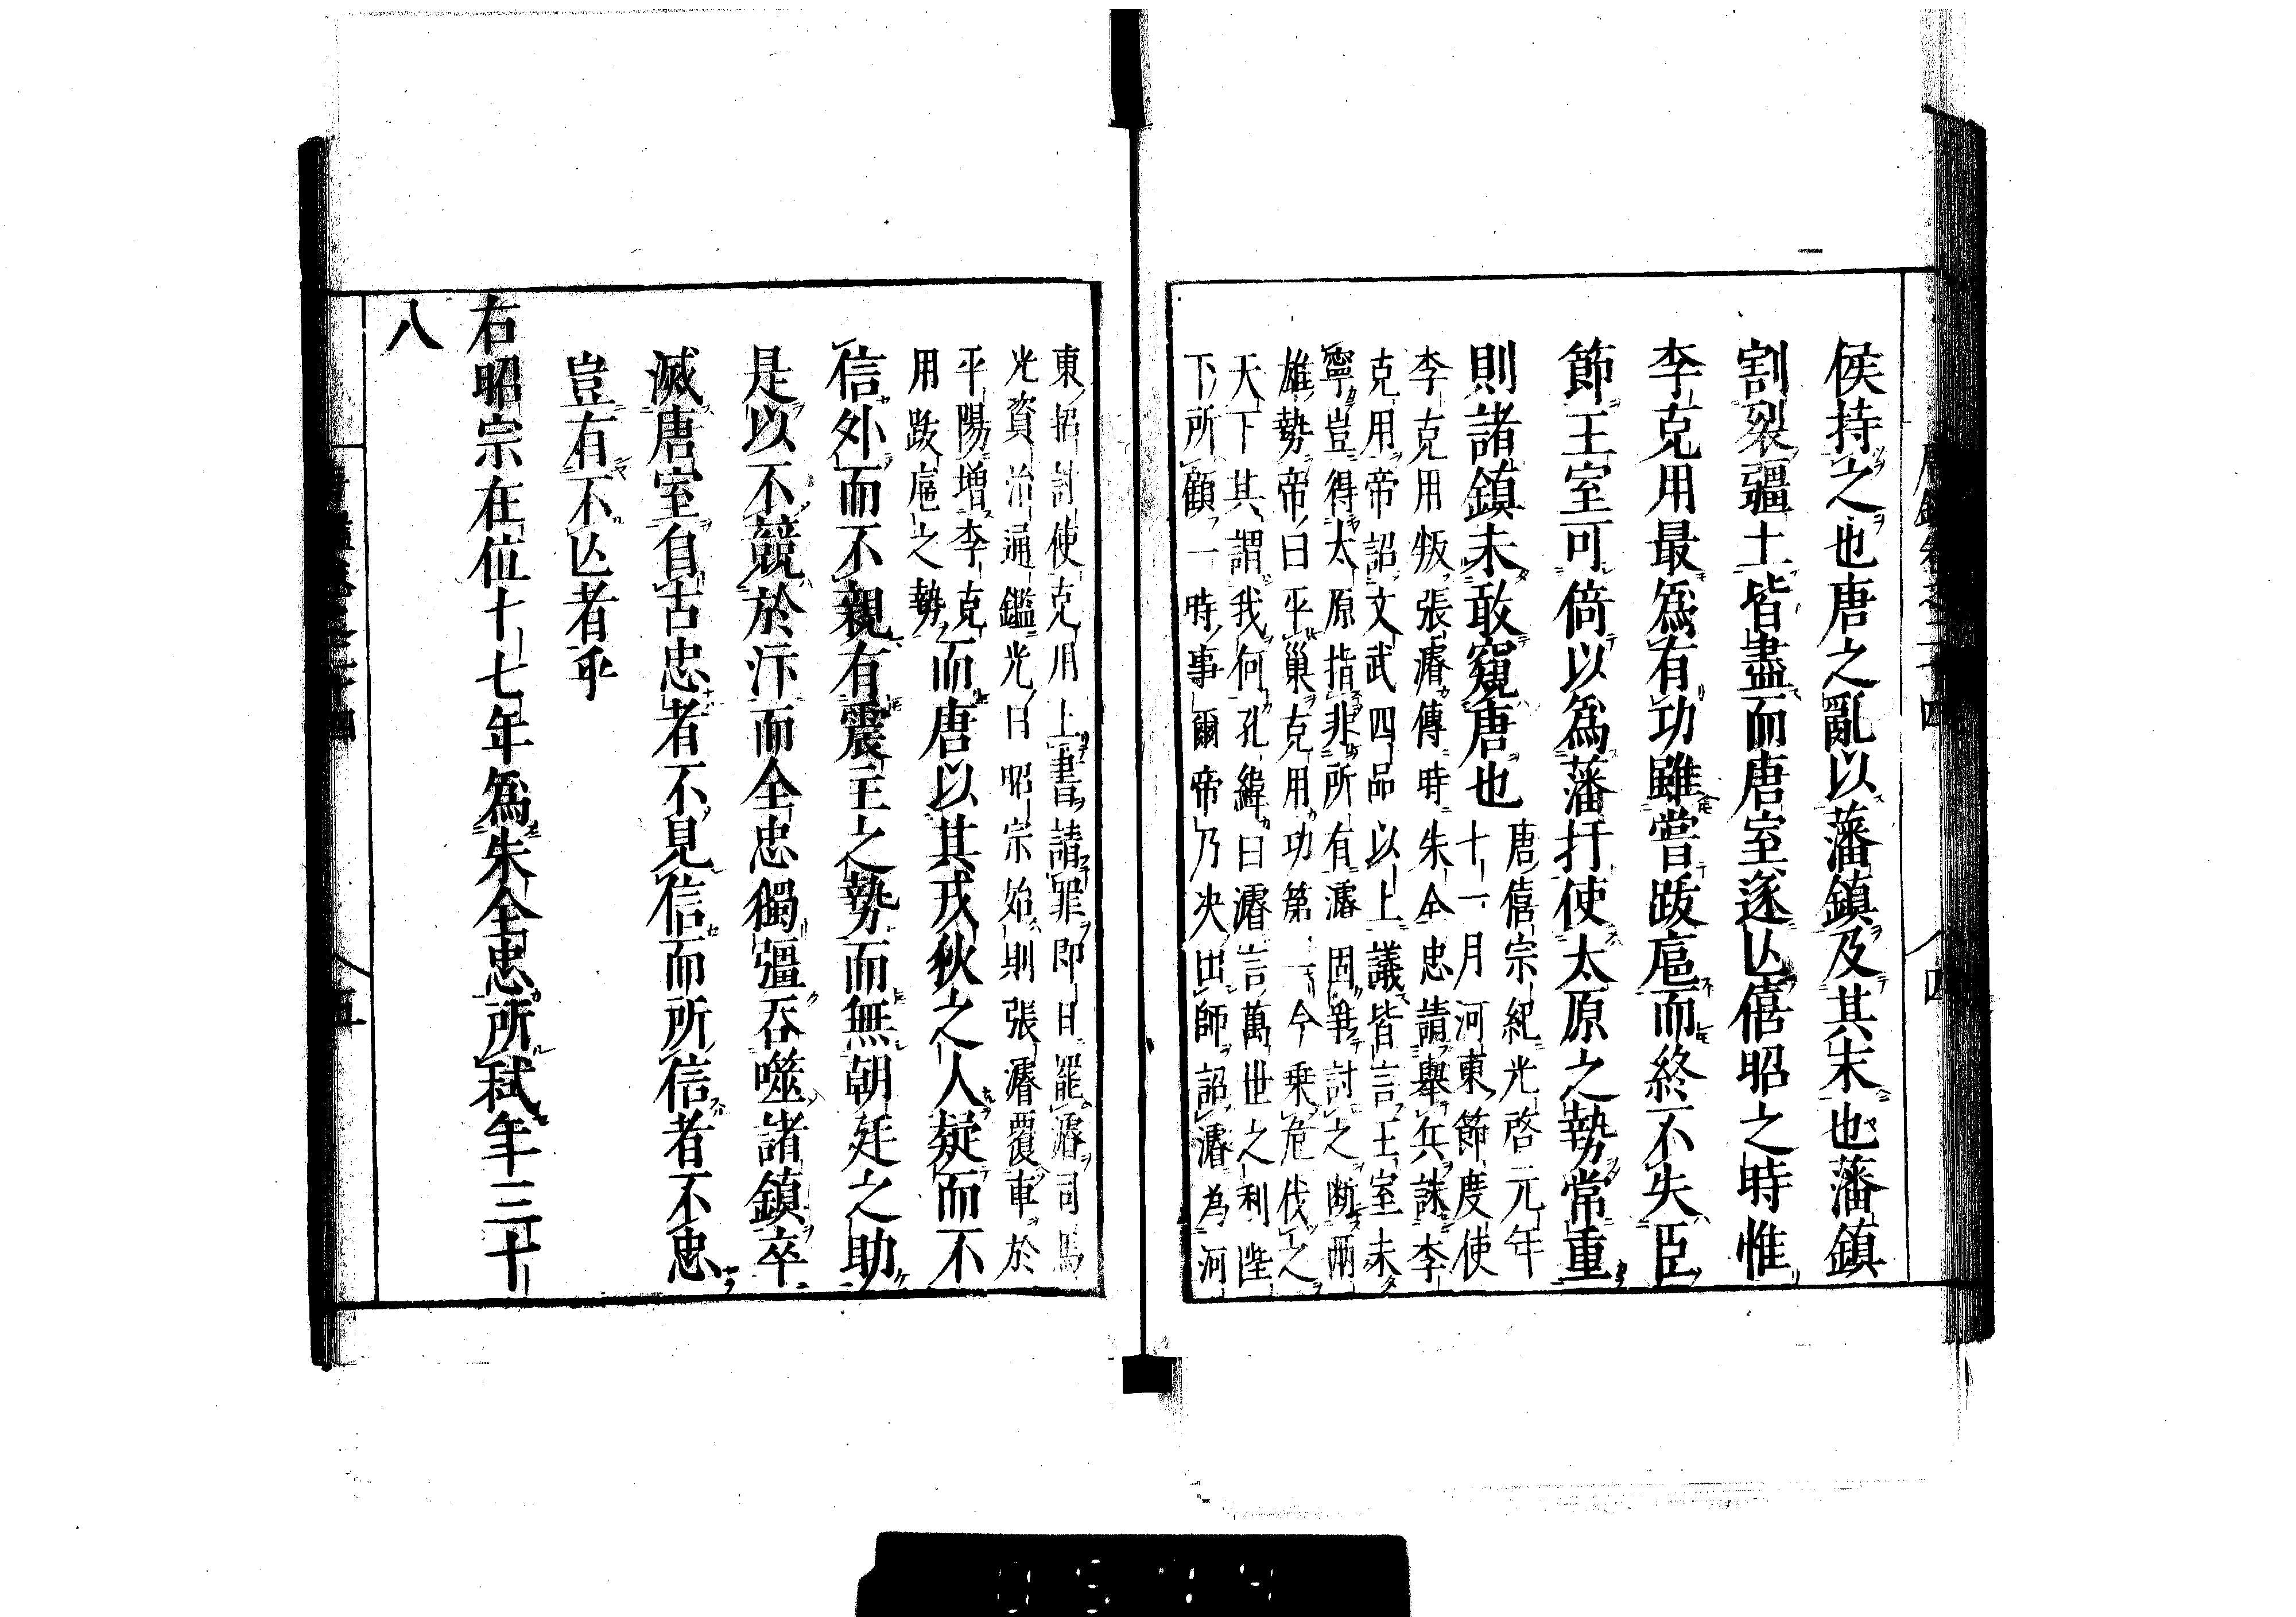 侯持之也唐之亂以藩鎮及其末也藩鎮
割裂疆土皆盡而唐室遂亾僖昭之時惟
李克用最爲有功雖嘗跋扈而終不失臣
節王室可倚以爲藩扞使太原之勢常重
則諸鎮未敢窺唐也
唐僖宗紀光啓元年
十一月河東節度使
李克用叛張濬傳時朱全忠請舉兵誅李
克用帝詔文武四品以上議皆言王室未
寧豈得太原指非所有濬固爭討之斷兩
雄勢帝曰平巢克用功第一今乗危伐之
天下其謂我何孔緯曰濬言萬世之利陛
下所顧一時事爾帝乃决出師詔濬為河
東招討使克用上書請罪即日罷濬司馬
光資治通鑑光曰昭宗始則張濬覆車於
平陽增李克
用跋扈之勢
而唐以其戎狄之人疑而不
信外而不親有震主之勢而無朝廷之助
是以不競於汴而全忠獨彊吞噬諸鎮卒
滅唐室自古忠者不見信而所信者不忠
豈有不亾者乎
右昭宗在位十七年爲朱全忠所弒年三十
八